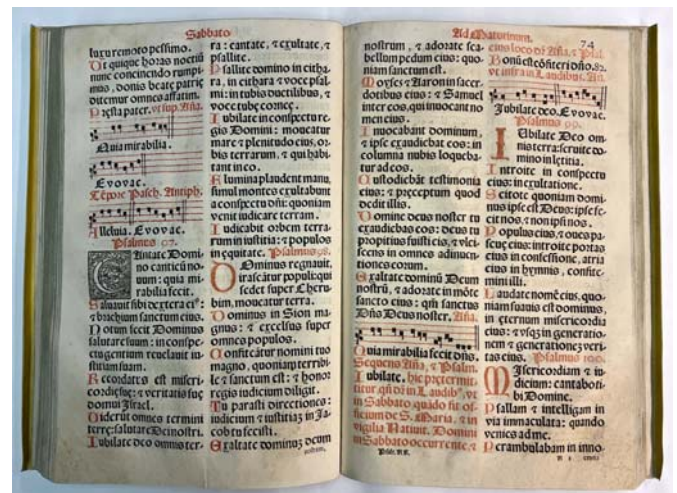 Sabbato
luxu remoto pessimo.
Ut quique horas noctiū
nunc concinendo rumpi-
mus, donis beatę patrię
ditemur omnes affatim.
Pręsta pater. vt sup. Aña.
Quia mirabilia.
Evovae.
Tēpore Pasch. Antiph.
Alleluia. Evovae.
Psalmus 97.
CAntate Domi-
no canticū no-
uum: quia mi-
rabilia fecit.
Saluauit sibi dextera eiꝰ:
& brachium sanctum eius.
Notum fecit Dominus
salutare suum: in conspe-
ctu gentium reuelauit iu-
stitiam suam.
Recordatus est miseri-
cordię suę: & veritatis suę
domui Israel.
Viderūt omnes termini
terrę: salutare Dei nostri.
Iubilate deo omnis ter-
ra: cantate, & exultate, &
psallite.
Psallite domino in citha-
ra, in cithara & voce psal-
mi: in tubis ductilibus, &
voce tubę cornęę.
Iubilate in conspectu re-
gis Domini: moueatur
mare & plenitudo eius, or-
bis terrarum, & qui habi-
tant in eo.
Flumina plaudent manu,
simul montes exultabunt
a conspectu dñi: quoniam
venit iudicare terram.
Iudicabit orbem terra-
rum in iustitia: & populos
in ęquitate. Psalmus 98.
DOminus regnauit,
irascātur populi: qui
sedet super Cheru-
bim, moueatur terra.
Dominus in Sion ma-
gnus: & excelsus super
omnes populos.
Confiteātur nomini tuo
magno, quoniam terribi-
le & sanctum est: & honor
regis iudicium diligit.
Tu parasti directiones:
iudicium & iustitiā in Ja-
cob tu fecisti.
Exaltate dominuz deum
nostrum,
Ad Maturinum. 74
nostrum, & adorate sca-
bellum pedum eius: quo-
niam sanctum est.
Moyses & Aaron in sacer-
dotibus eius: & Samuel
inter eos, qui inuocant no
men eius.
Inuocabant dominum,
& ipse exaudiebat eos: in
columna nubis loqueba-
tur ad eos.
Custodiebāt testimonia
eius: & pręceptum quod
dedit illis.
Domine deus noster tu
exaudiebas eos: deus tu
propitius fuisti eis, & vlci-
scens in omnes adinuen-
tiones eorum.
Exaltate dominū Deum
nostrū, & adorate in mōte
sancto eius: qm̄ sanctus
Dñs Deus noster. Aña.
Quia mirabilia fecit dñs.
Sequens Aña, & Psalm.
Iubilate. hic prętermit-
titur, qñ dr̄ in Laudibꝰ, vt
in Sabbato quādo fit of-
ficium de S. Maria, & in
vigilia Natiuit. Domini
in Sabbato occurrente, &
eius loco dr̄ Aña, & Psal.
Bonū est cōfiteri dño. 82.
vt infra in Laudibus. An.
Jubilate deo. Evovae.
Psalmus 99.
IUbilate Deo om-
nis terra: seruite do-
mino in lętitia.
Introite in conspectu
eius: in exultatione.
Scitote quoniam domi-
nus ipse est Deus: ipse fe-
cit nos, & non ipsi nos.
Populus eius, & oues pa-
scuę eius: introite portas
eius in confessione, atria
eius in hymnis, confite-
mini illi.
Laudate nomē eius, quo-
niam suauis est dominus,
in eternum misericordia
eius: & vsqz in generatio-
nem & generationez veri-
tas eius. Psalmus 100.
MIsericordiam & iu-
dicium: cantabo ti-
bi Domine.
Psallam & intelligam in
via immaculata: quando
venies ad me.
Perambulabam in inno-